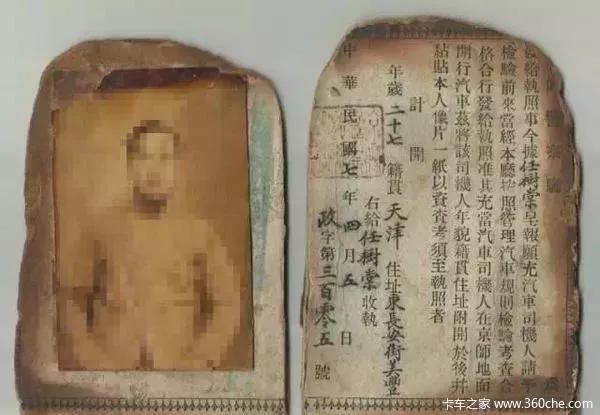 警察廳
給執照事今據任樹棠呈報願充汽車司機人請予
檢驗前來當經本廳按照管理汽車規則檢驗考查合
格合行發給執照准其充當汽車司機人在京師地面
開行汽車茲將該司機人年貌籍貫住址附開於後并
黏貼本人像片一紙以資查考須至執照者
計開
年歲二十七 籍貫天津 住址東長安街美豐
右給任樹棠收執
中華民國七年四月五日
政字第三百零五號
卡车之家 www.360che.com